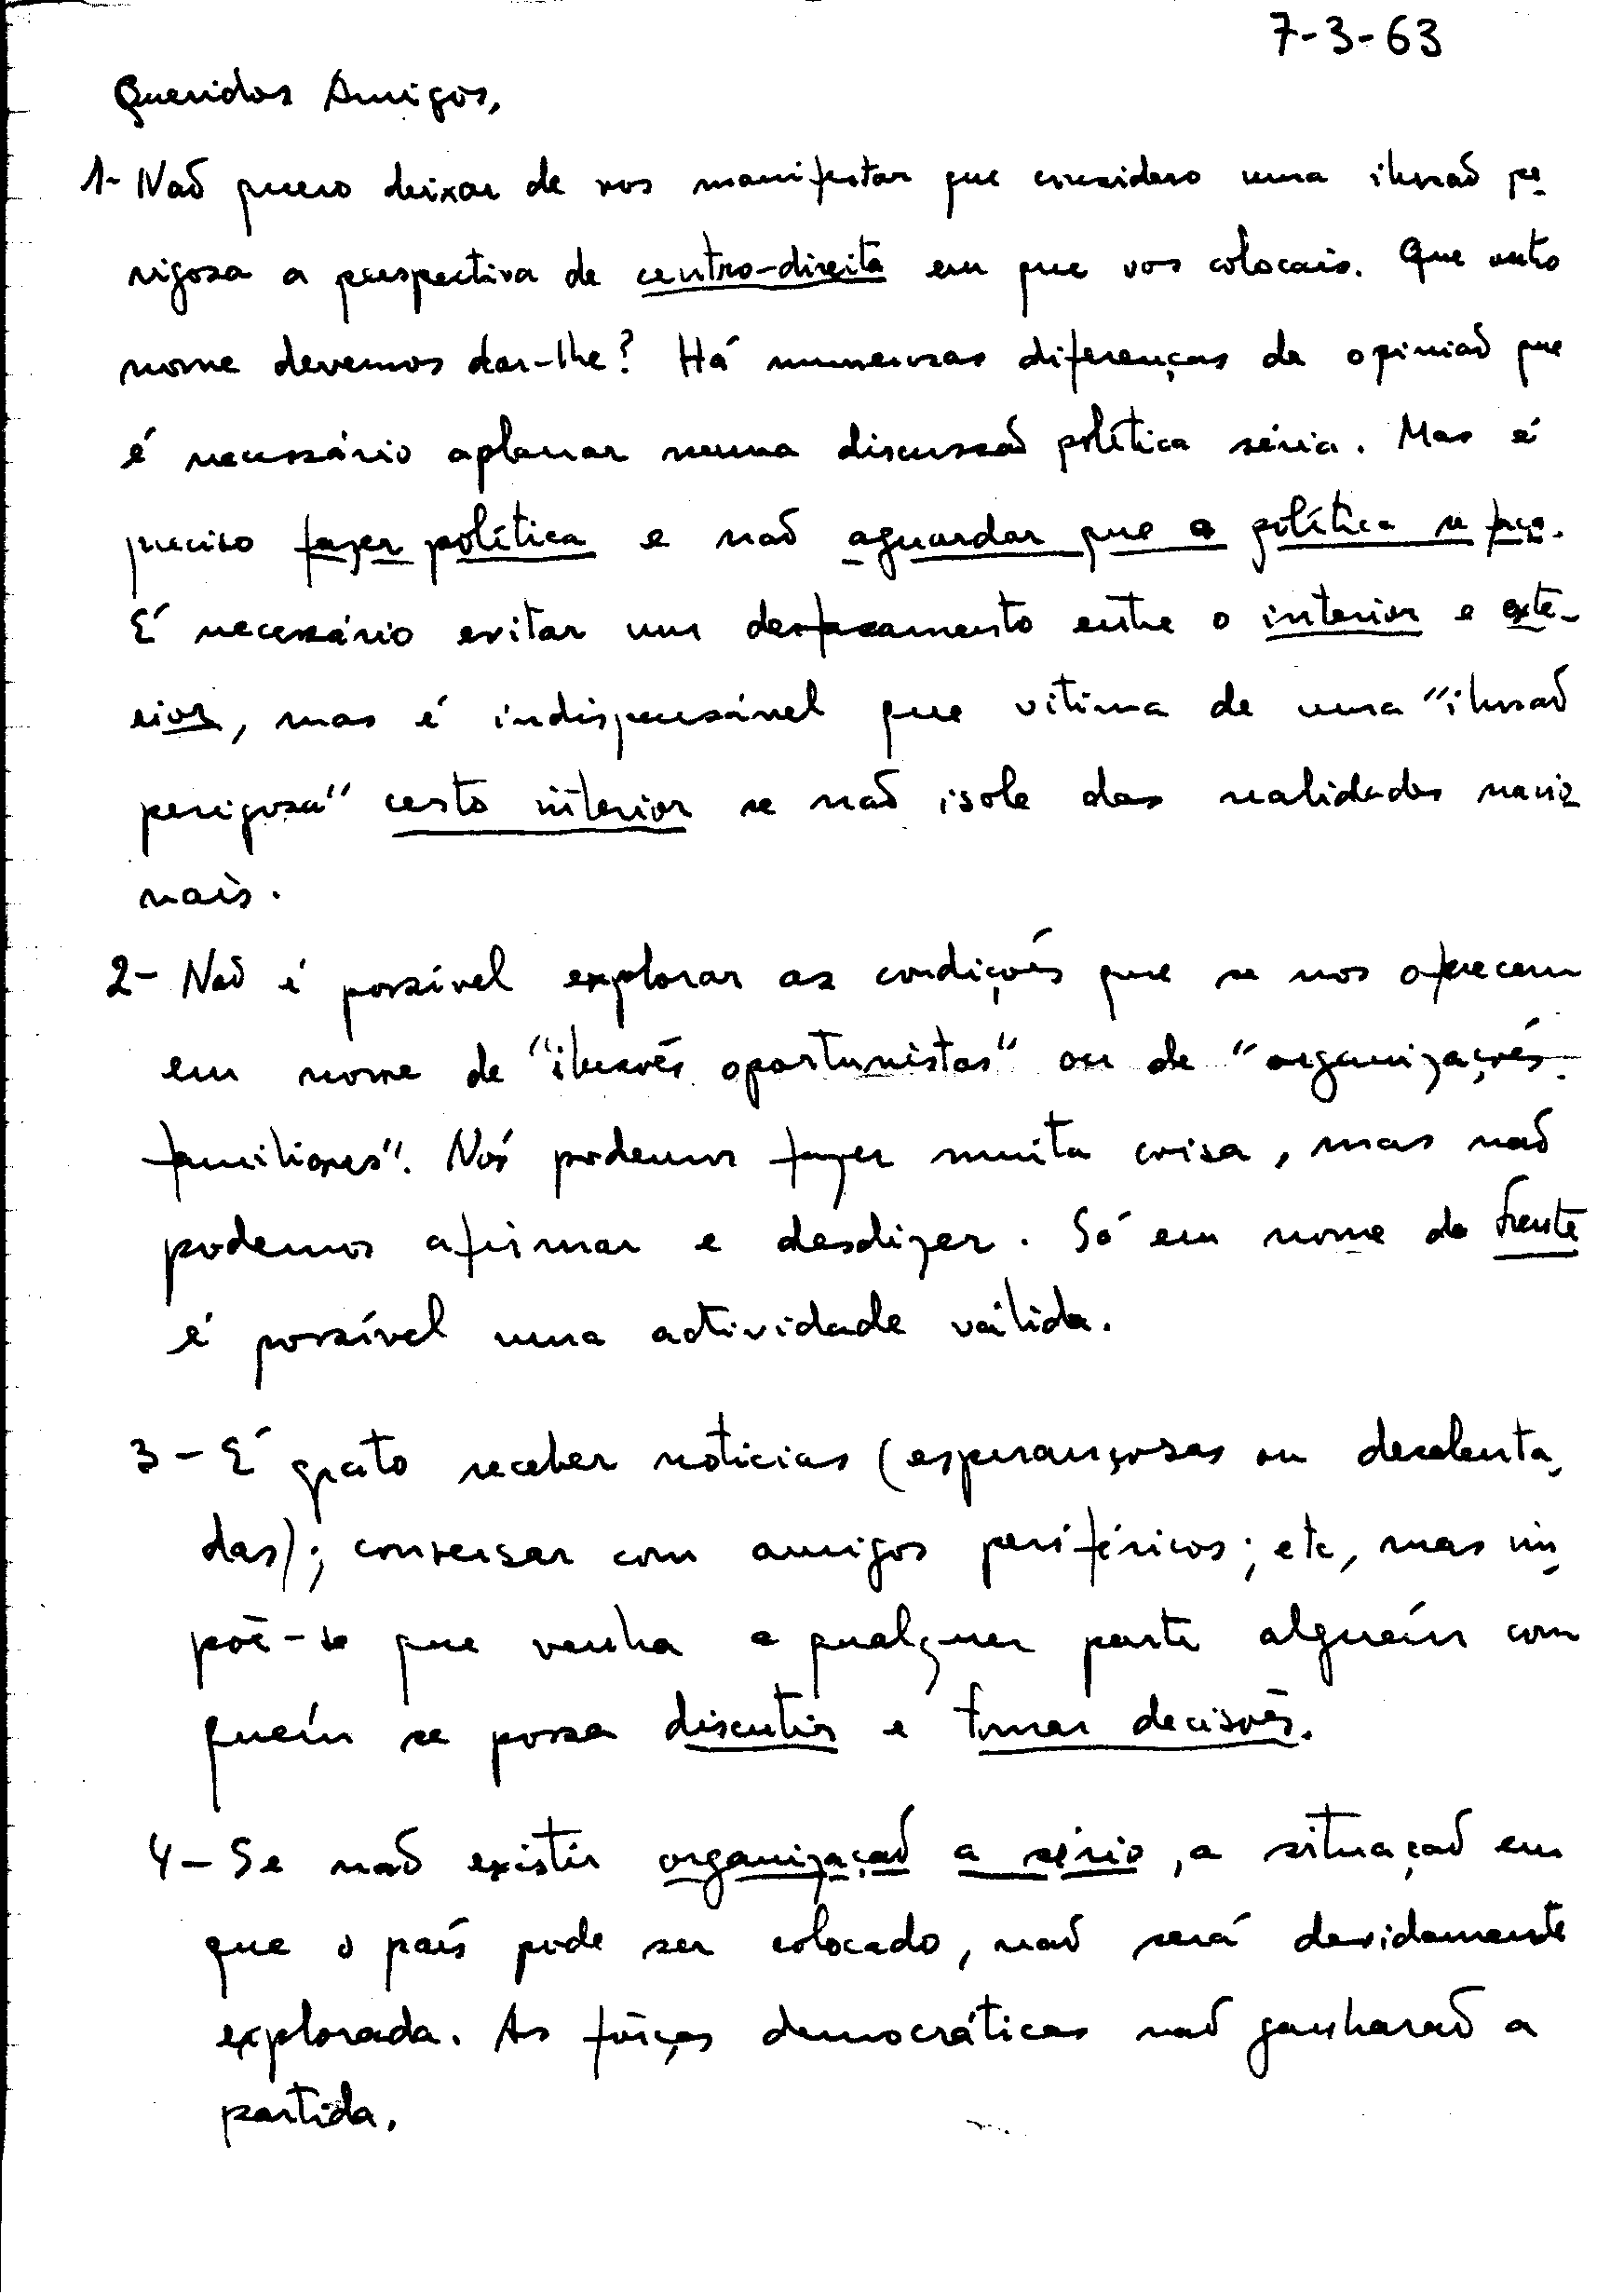 7-3-63
Queridos Amigos,
1- Não quero deixar de vos manifestar que considero uma ilusão pe
rigosa a perspectiva de centro-direita em que vos colocais. Que outro
nome devemos dar-lhe? Há numerosas diferenças de opinião que
é necessário aplanar numa discussão política séria. Mas é
preciso fazer política e não aguardar que a política se faça.
É necessário evitar um desfasamento entre o interior e exte-
rior, mas é indispensável que vitima de uma "ilusão
perigosa" certo interior se não isole das realidades nacio
nais.
2- Não é possível explorar as condições que se nos oferecem
em nome de "ilusões oportunistas" ou de "organizações
familiares". Nós podemos fazer muita coisa, mas não
podemos afirmar e desdizer. Só em nome da Frente
é possível uma actividade válida.
3 - É grato receber noticias (esperançosas ou desalenta
das); conversar com amigos periféricos; etc, mas im
põe-se que venha a qualquer parte alguém com
quem se possa discutir e tomar decisões.
4 - Se não existir organização a sério, a situação em
que o país pode ser colocado, não será devidamente
explorada. As fôrças democráticas não ganharão a
partida.